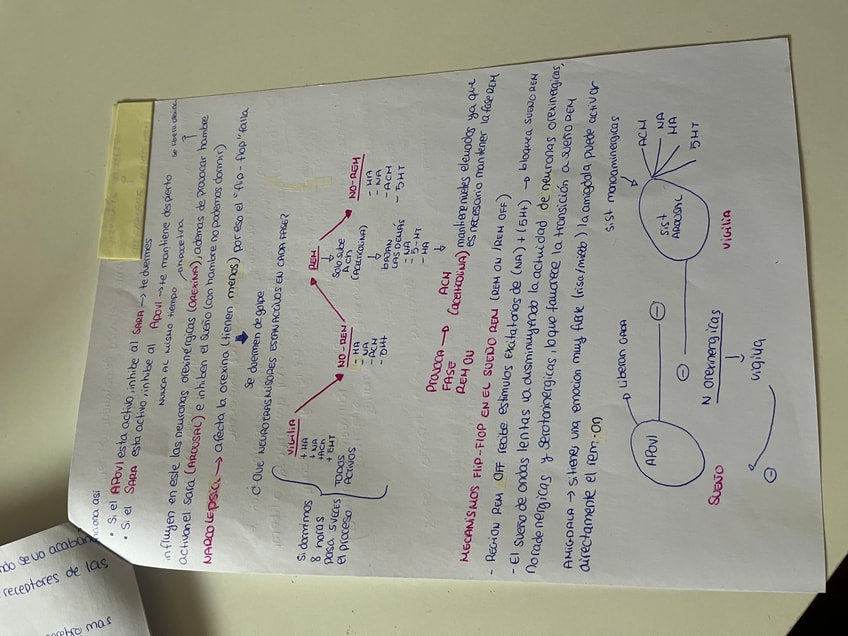 ndo se va acaband
receptores de las
mas
ciona asi
• Si el APOVI esta activo, inhibe al SARA → te duermes
• Si el SARA esta activo, inhibe al APOVI → te mantiene despierto
NUNCA AL MISMO TIEMPO
influyen en este las neuronas orexinérgicas (OREXINA), además de provocar hambre
activan el sara (AROUSAL) e inhiben el sueño (con hambre no podemos dormir)
NARCOLEPSIA → afecta la orexina (tienen menos) por eso el "flip-flop" falla
Se duermen de golpe
¿ QUE NEUROTRANSMISORES ESTAN ACTIVOS EN CADA FASE?
VIGILIA
+ HA
+ NA
+ ACh
+ 5HT
TODOS
ACTIVOS
NO-REM
- HA
- NA
- ACH
- 5HT
REM
Solo sube
ACh
↓
BAJAN
LAS DEMÁS
- NA
- 5-HT
- HA
NO-REM
- HA
- NA
- ACH
- 5HT
Si dormimos
8 horas
pasa 5 veces
el proceso
PROVOCA → ACH
FASE (ACETILCOLINA) mantiene niveles elevados ya que
REM ON es necesario mantener la fase REM
MECANISMOS FLIP-FLOP EN EL SUEÑO REM (REM ON / REM OFF)
- REGION REM OFF recibe estimulos excitatorios de (NA) + (5HT) → bloquea SUEÑO REM
- El sueño de ondas lentas va disminuyendo la actividad de neuronas orexinergicas,
Noradrenergicas y serotoninergicas, lo que favorece la transición a sueño REM
AMIGDALA → Si tienes una emocion muy fuerte (risa/miedo) la amigdala puede activar
directamente el rem-on
sist monoaminergicas
APOVI
→ Liberan GABA
⊖
⊖
SIST
AROUSAL
ACH
NA
HA
5HT
SUEÑO
N orexinergicas
↓
vigilia
VIGILIA
⊖